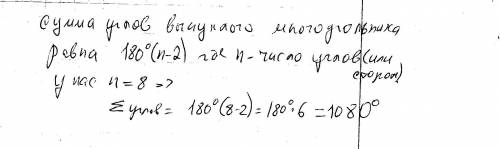 Сумма углов выпуклого многоугольника
равна 180°(n-2) где n - число углов (или
сторон)
у нас n = 8 =>
Σ углов = 180°(8-2) = 180°·6 = 1080°